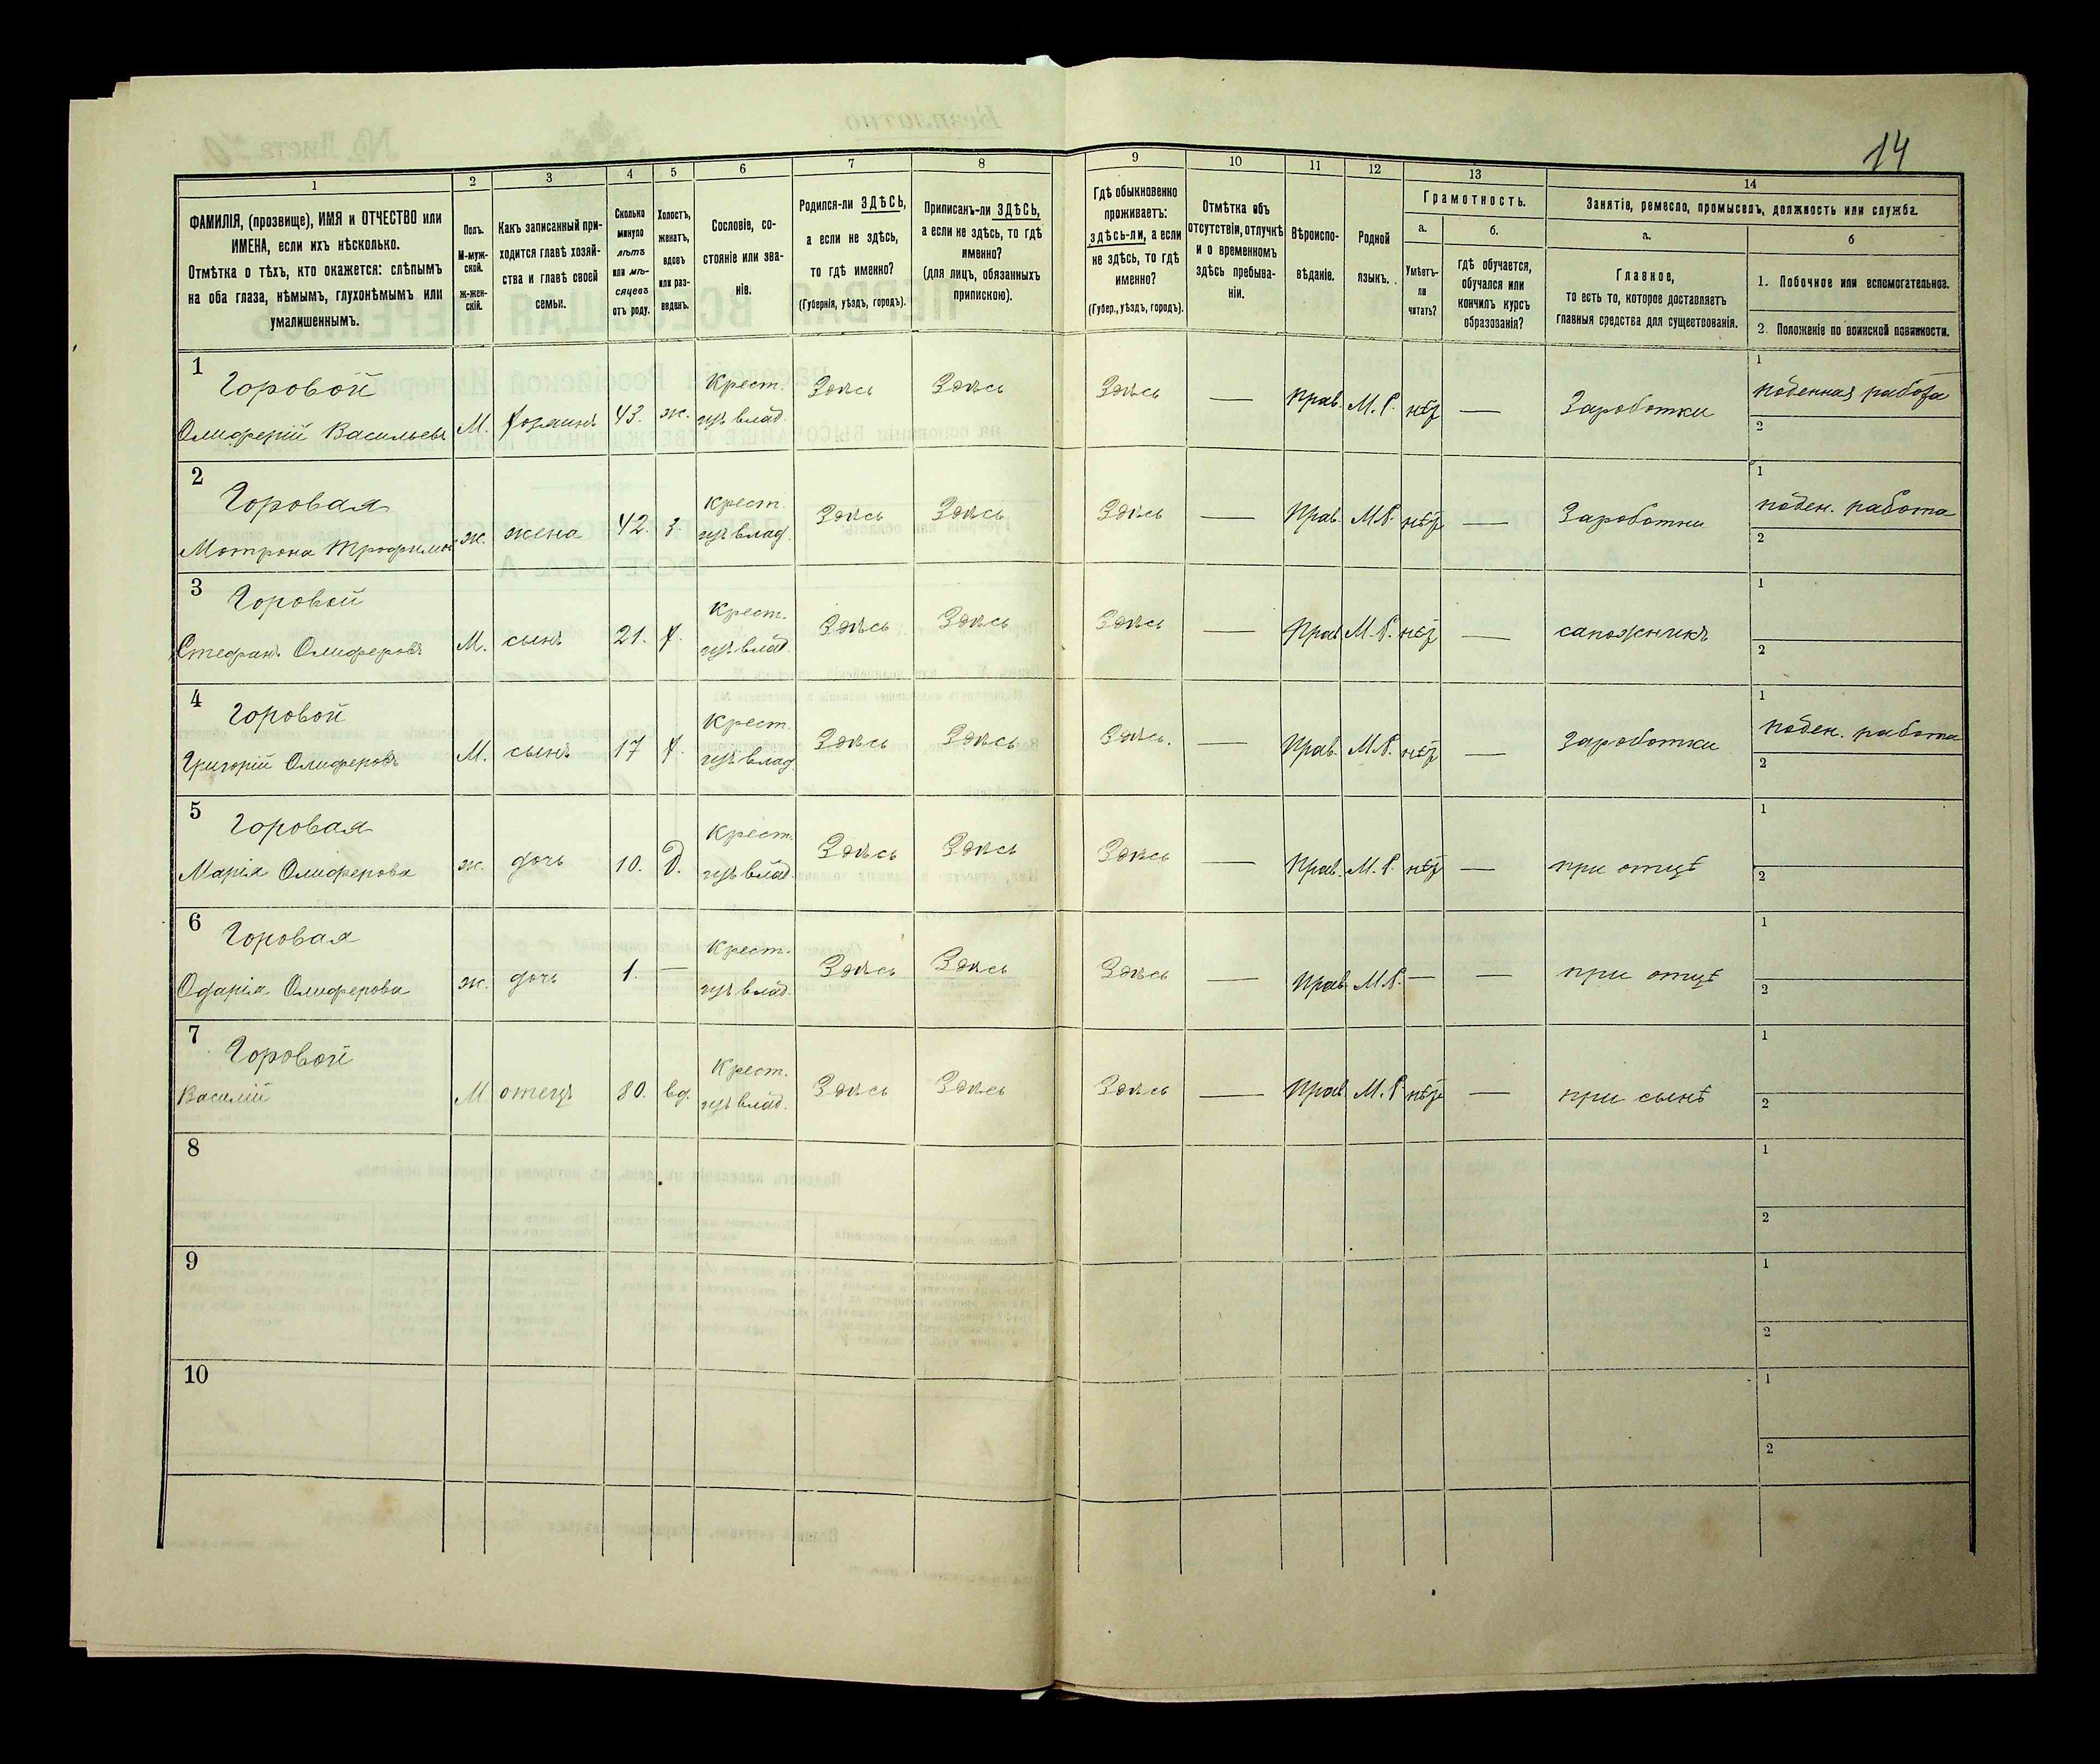 14
1
2
3
4
5
6
7
8
9
10
11
12
13
14
ФАМИЛІЯ, (прозвище), ИМЯ и ОТЧЕСТВО или
ИМЕНА, если ихъ нѣсколько.
Отмѣтка о тѣхъ, кто окажется: слѣпымъ
на оба глаза, нѣмымъ, глухонѣмымъ или
умалишеннымъ.
Полъ.
М-муж-
ской.
ж-жен-
скій.
Какъ записанный при-
ходится главѣ хозяй-
ства и главѣ своей
семьи.
Сколько
минуло
лѣтъ
или мѣ-
сяцевъ
отъ роду.
Холостъ,
женатъ,
вдовъ
или раз-
веденъ.
Сословіе, со-
стояніе или зва-
ніе.
Родился-ли ЗДѢСЬ,
а если не здѣсь,
то гдѣ именно?
(Губернія, уѣздъ, городъ).
Приписанъ-ли ЗДѢСЬ,
а если не здѣсь, то гдѣ
именно?
(для лицъ, обязанныхъ
припискою).
Гдѣ обыкновенно
проживаетъ:
здѣсь-ли, а если
не здѣсь, то гдѣ
именно?
(Губер., уѣздъ, городъ).
Отмѣтка объ
отсутствіи, отлучкѣ
и о временномъ
здѣсь пребыва-
ніи.
Вѣроиспо-
вѣданіе.
Родной
языкъ.
Грамотность.
а.
Умѣетъ-
ли
читать?
б.
гдѣ обучается,
обучался или
кончилъ курсъ
образованія?
Занятіе, ремесло, промыселъ, должность или служба.
а.
Главное,
то есть то, которое доставляетъ
главныя средства для существованія.
б
1. Побочное или вспомогательное.
2. Положеніе по воинской повинности.
1
Горовой
Олиферій Васильевъ М. хозяинъ 43. ж. Крест. изъ влад. Здѣсь Здѣсь Здѣсь — Прав. М.Р. нѣтъ — Заработки
1 поденная работа
2
2
Горовая
Мотрона Трофимов ж. жена 42. з. Крест. изъ влад. Здѣсь Здѣсь Здѣсь — Прав. М.Р. нѣтъ — Заработки
1 поден. работа
2
3
Горовой
Стефанъ Олиферовъ М. сынъ 21. х. Крест. изъ влад. Здѣсь Здѣсь Здѣсь — Прав. М.Р. нѣтъ — сапожникъ
1
2
4
Горовой
Григорій Олиферовъ М. сынъ 17 х. Крест. изъ влад. Здѣсь Здѣсь Здѣсь. — Прав. М.Р. нѣтъ — Заработки
1 поден. работа
2
5
Горовая
Марія Олиферова ж. дочь 10. Д. Крест. изъ влад. Здѣсь Здѣсь Здѣсь — Прав. М.Р. нѣтъ — при отцѣ
1
2
6
Горовая
Одарія Олиферова ж. дочь 1. — Крест. изъ влад. Здѣсь Здѣсь Здѣсь — Прав. М.Р. — — при отцѣ
1
2
7
Горовой
Василій М. отецъ 80. вд. Крест. изъ влад. Здѣсь Здѣсь Здѣсь — Прав. М.Р. нѣтъ — при сынѣ
1
2
8
1
2
9
1
2
10
1
2